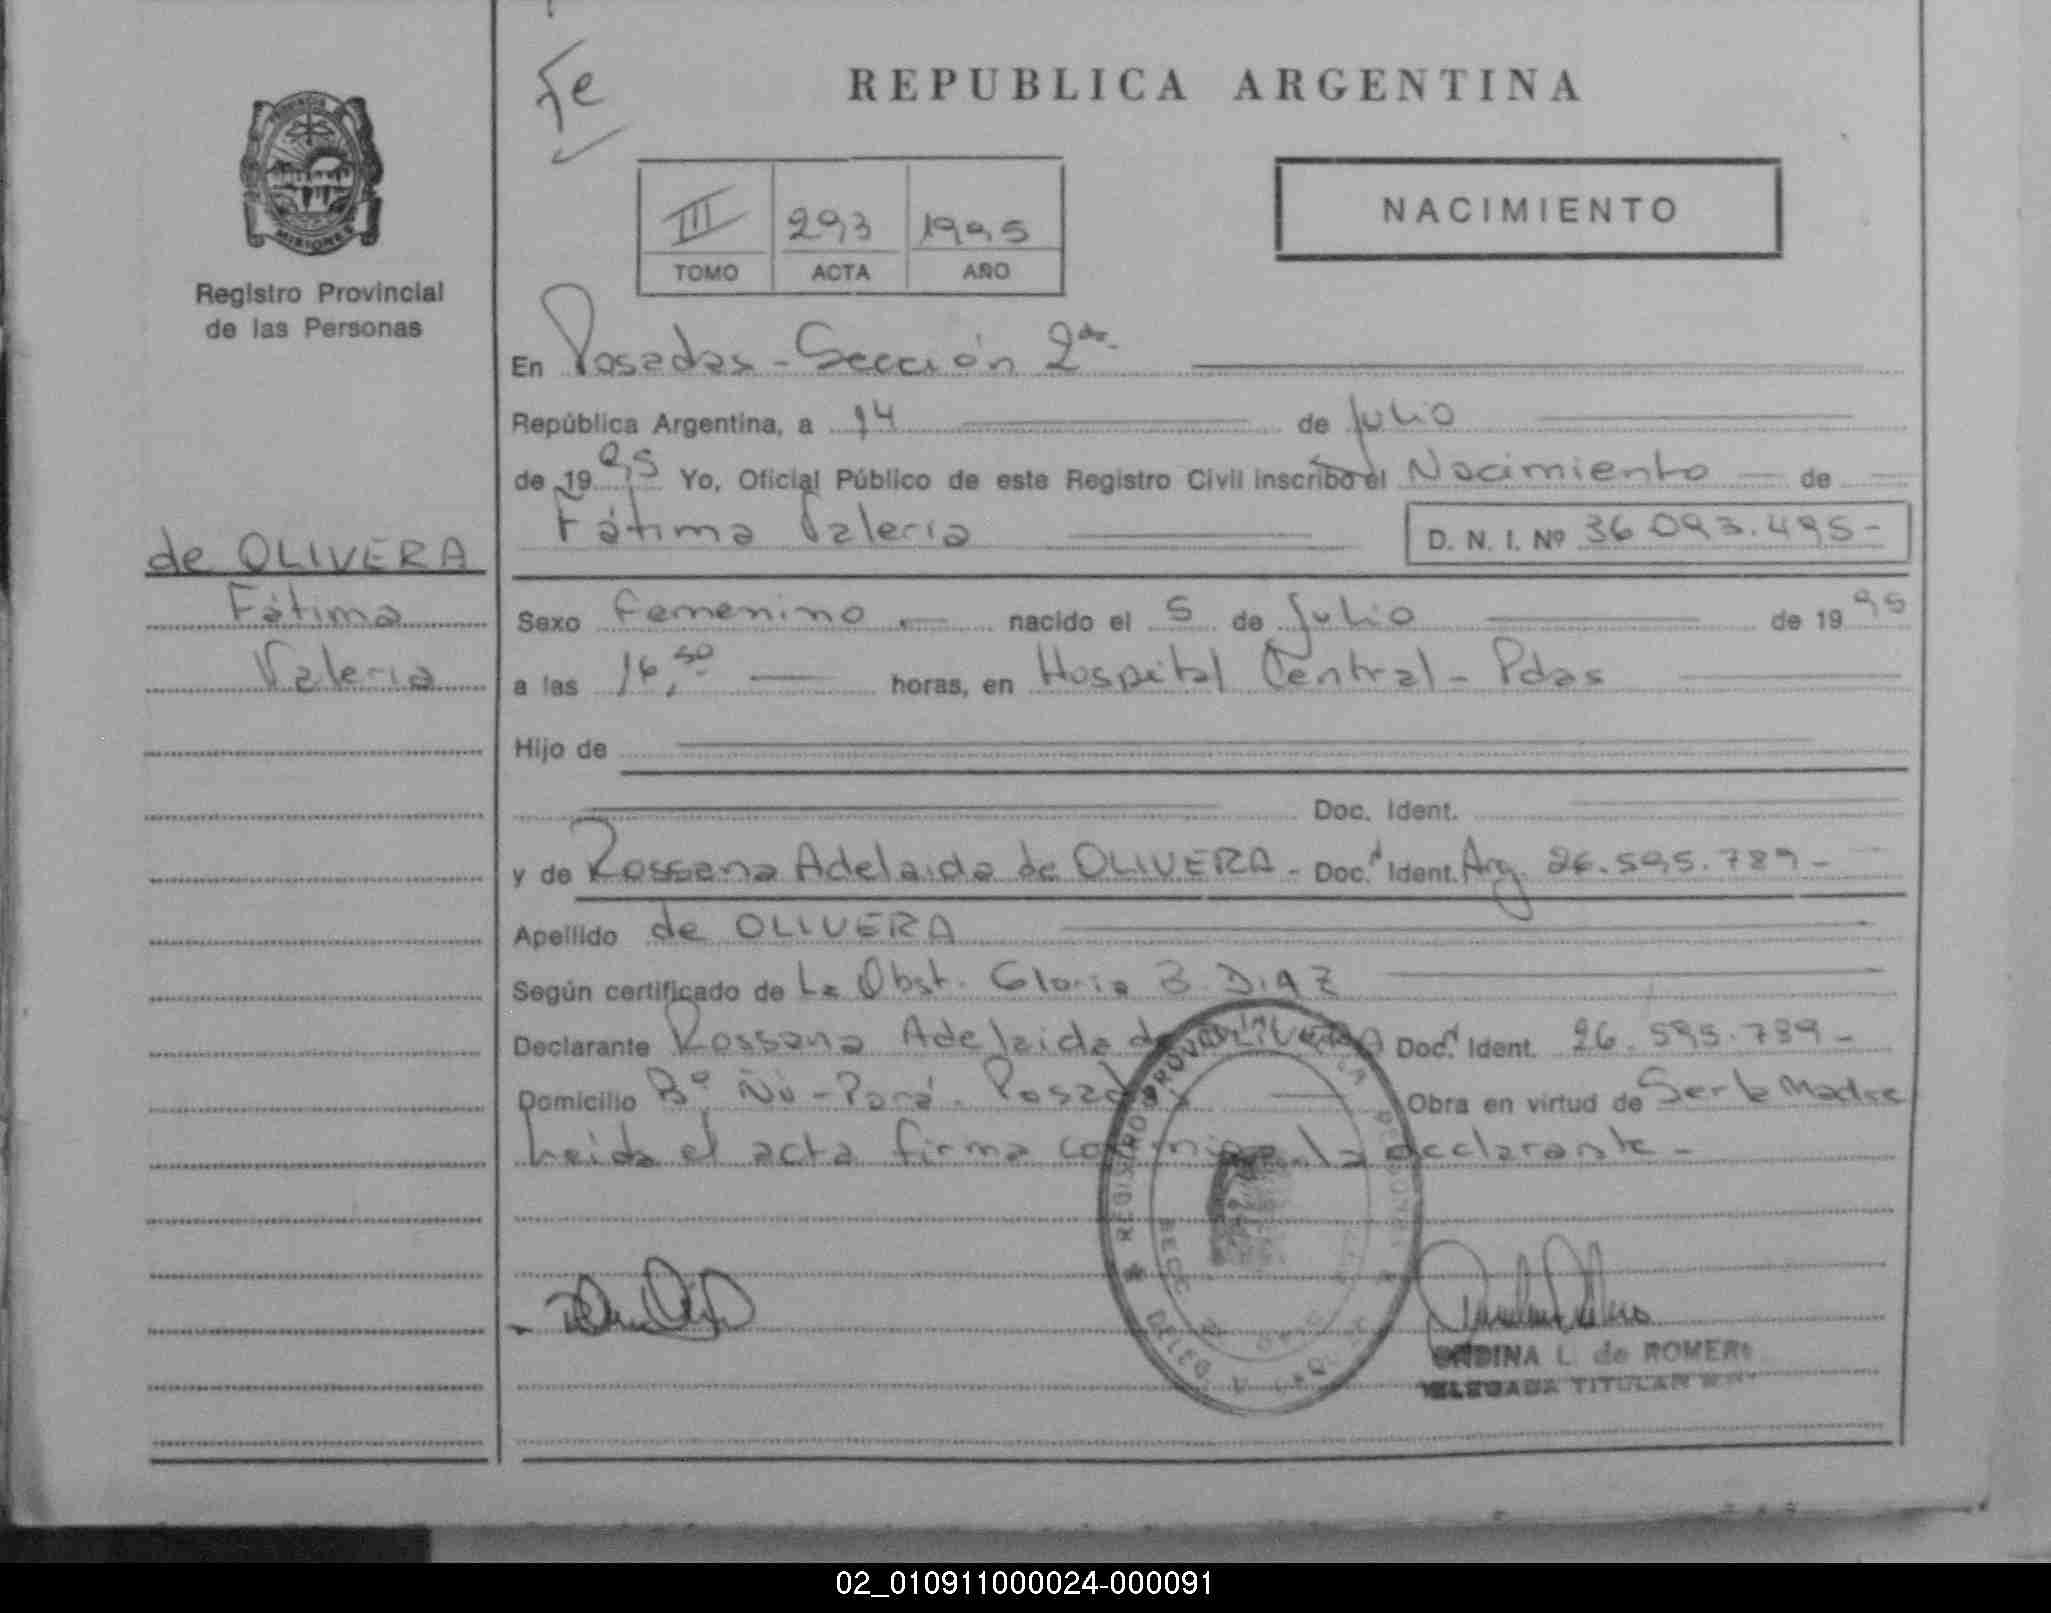 Fe
REPUBLICA ARGENTINA
III 293 1995
TOMO ACTA AÑO
NACIMIENTO
MISIONES
Registro Provincial
de las Personas
En Posadas - Sección 2da.
República Argentina, a 14 de Julio
de 1995 Yo, Oficial Público de este Registro Civil inscribo el Nacimiento de
Fátima Valeria D. N. I. Nº 36.093.495-
de OLIVERA
Fátima
Valeria
Sexo Femenino nacido el 5 de Julio de 1995
a las 16,50 horas, en Hospital Central - Pdas
Hijo de
Doc. Ident.
y de Rossana Adelaida de OLIVERA - Doc. Ident. Arg. 26.595.789-
Apellido de OLIVERA
Según certificado de La Obst. Gloria B. DIAZ
Declarante Rossana Adelaida de OLIVERA Doc. Ident. 26.595.789-
Domicilio Bº Ñu-Porá. Posadas Obra en virtud de Ser la Madre
Leida el acta firma conmigo la declarante-
REGISTRO PROVINCIAL DE LAS PERSONAS
L. de ROMERO
DELEGADA TITULAR
02_010911000024-000091